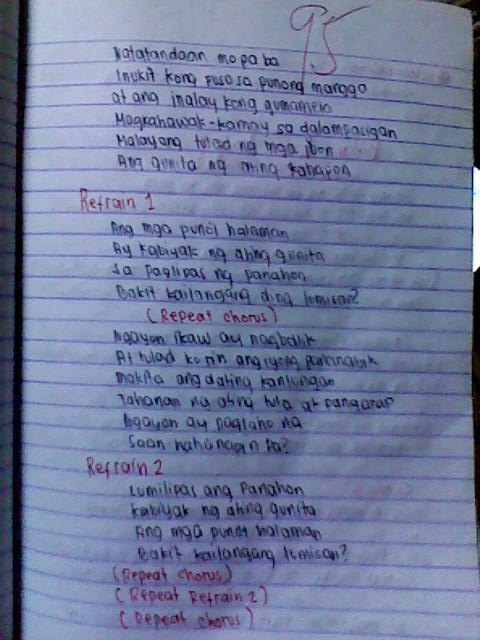 95
Natatandaan mo pa ba
Inukit kong puso sa punong mangga
at ang inalay kong gumamela
Magkahawak-kamay sa dalampasigan
Malayang tulad ng mga ibon
Ang gunita ng ating kahapon
Refrain 1
Ang mga puno't halaman
Ay kabiyak ng ating gunita
Sa paglipas ng panahon
Bakit kailangang ding lumisan?
(Repeat chorus)
Ngayon ikaw ay nagbalik
At tulad ko rin ang iyong pananabik
makita ang dating kanlungan
Tahanan ng ating tula at pangarap
Ngayon ay naglaho na
Saan hahanapin pa?
Refrain 2
Lumilipas ang Panahon
Kabiyak ng ating gunita
Ang mga puno't halaman
Bakit kailangang lumisan?
(Repeat chorus)
(Repeat Refrain 2)
(Repeat chorus)